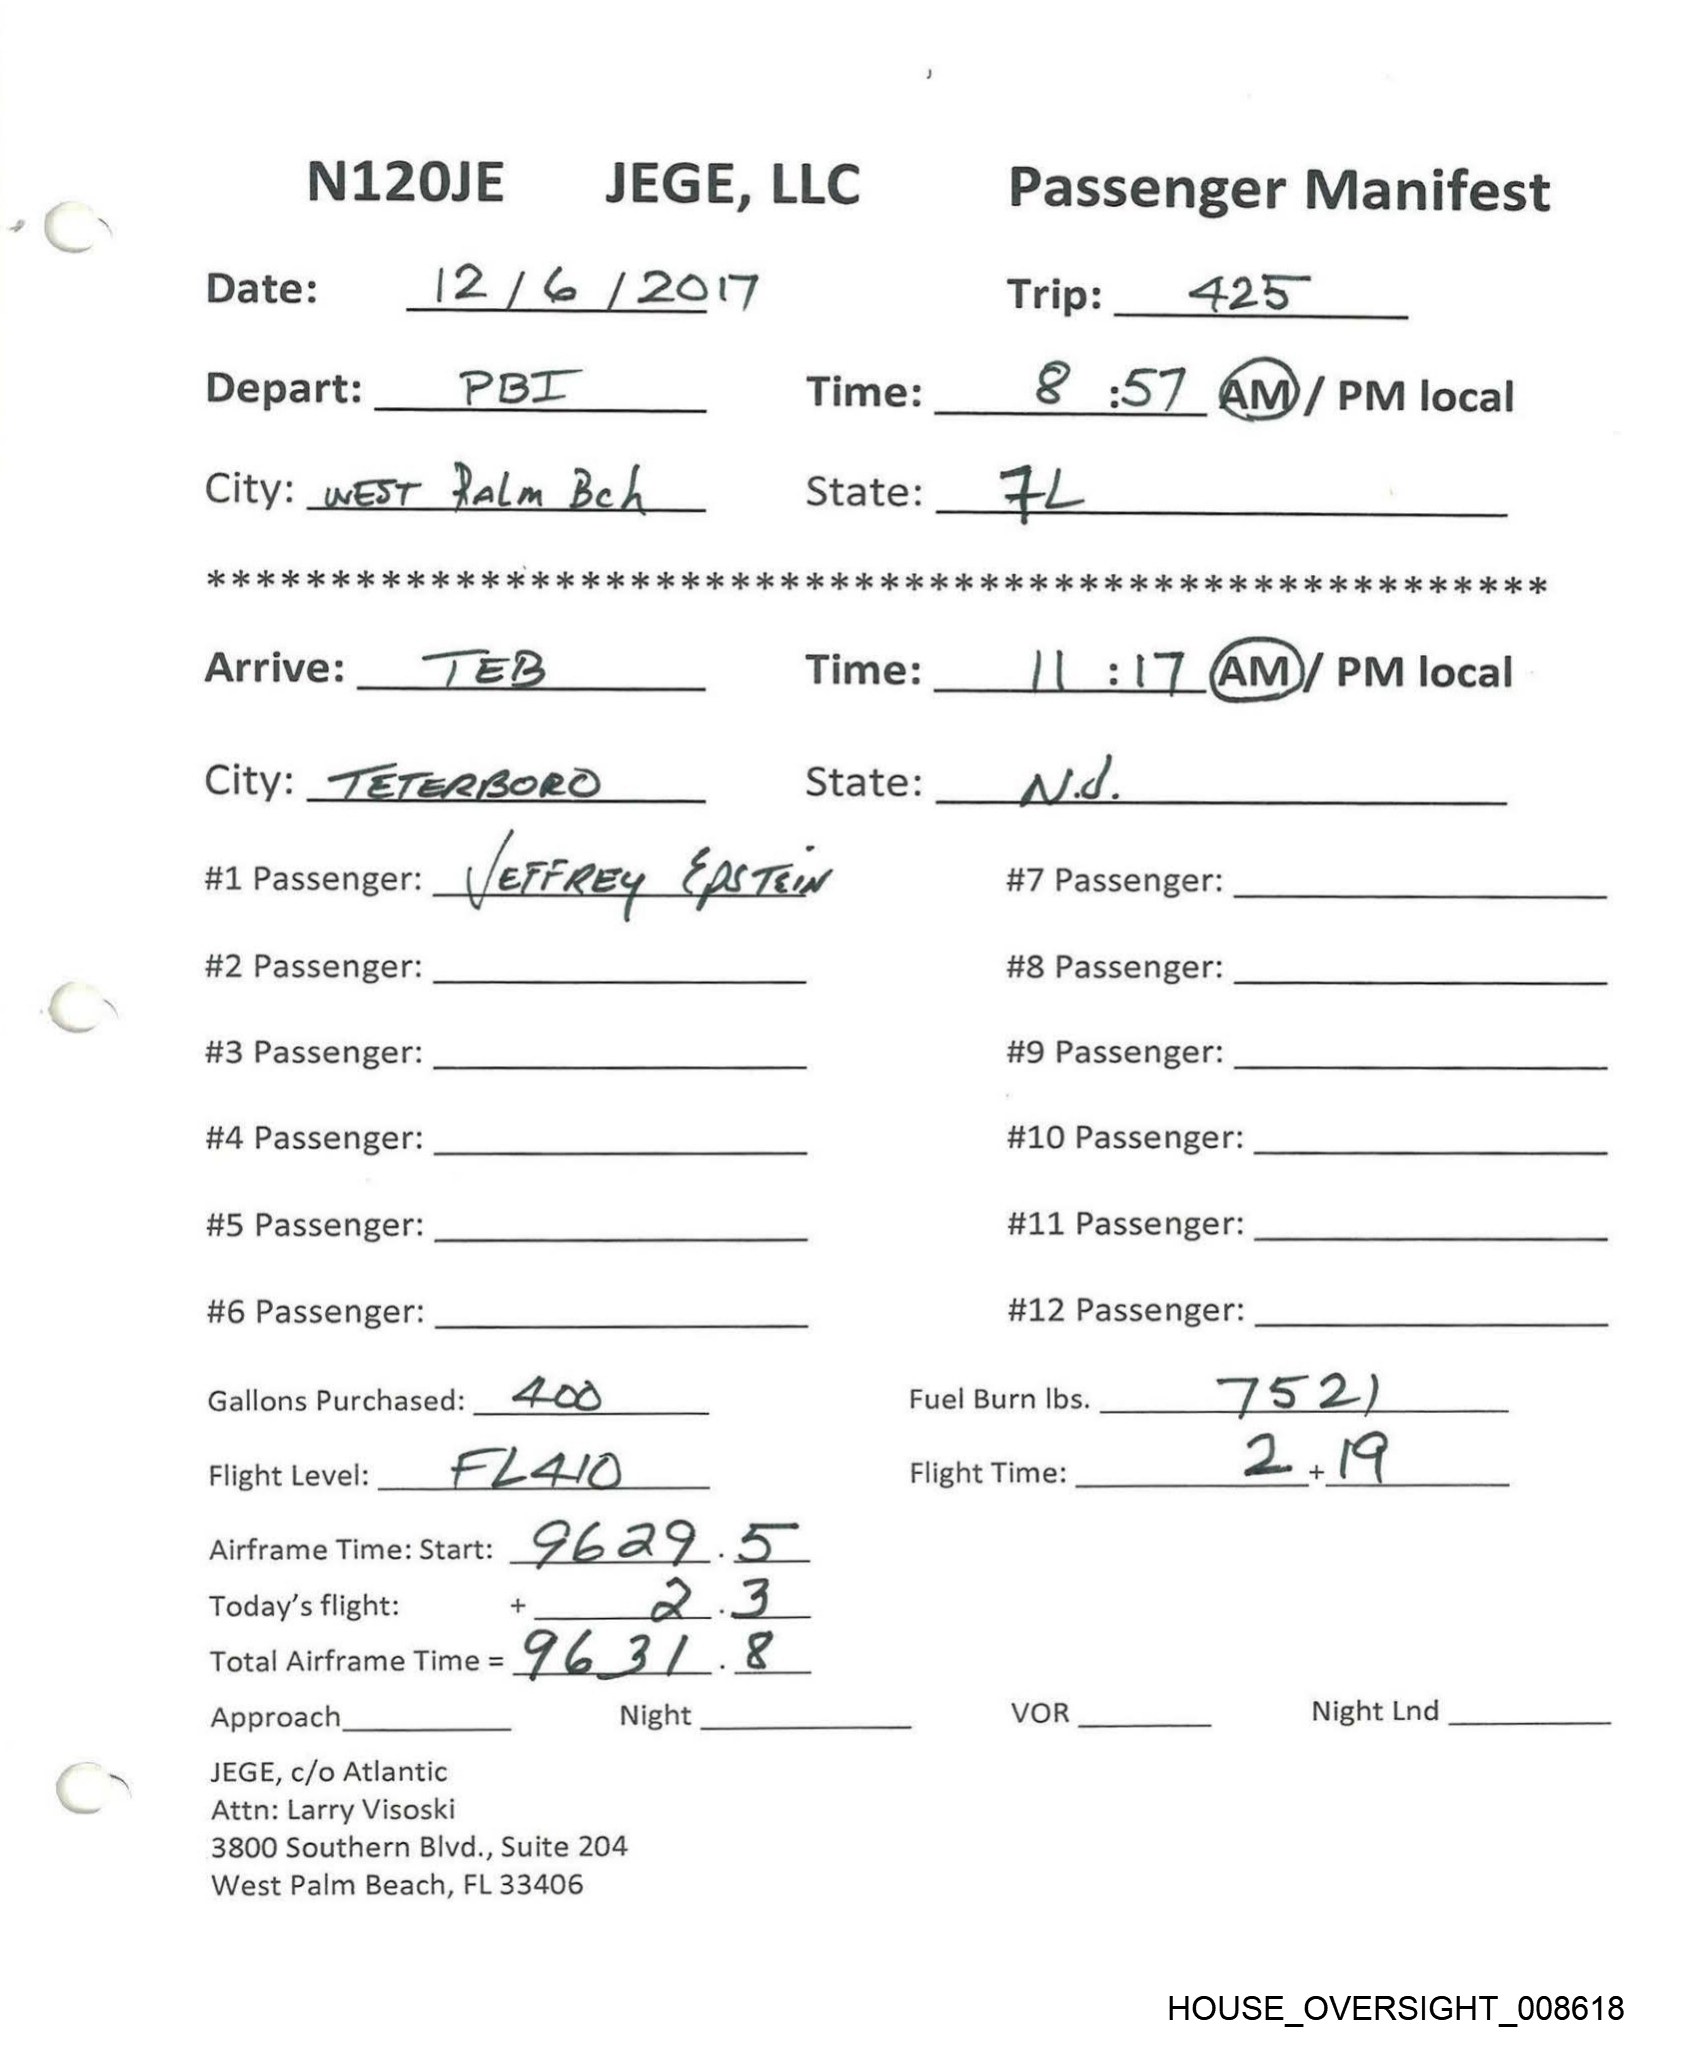 N120JE JEGE, LLC Passenger Manifest
Date: 12 / 6 / 2017 Trip: 425
Depart: PBI Time: 8 :57 AM / PM local
City: WEST Palm Bch State: FL
******************************************************
Arrive: TEB Time: 11 :17 AM / PM local
City: TETERBORO State: N.J.
#1 Passenger: JEFFREY EPSTEIN #7 Passenger:
#2 Passenger: #8 Passenger:
#3 Passenger: #9 Passenger:
#4 Passenger: #10 Passenger:
#5 Passenger: #11 Passenger:
#6 Passenger: #12 Passenger:
Gallons Purchased: 400 Fuel Burn lbs. 7521
Flight Level: FL410 Flight Time: 2 + 19
Airframe Time: Start: 9629 . 5
Today's flight: + 2 . 3
Total Airframe Time = 9631 . 8
Approach Night VOR Night Lnd
JEGE, c/o Atlantic
Attn: Larry Visoski
3800 Southern Blvd., Suite 204
West Palm Beach, FL 33406
HOUSE_OVERSIGHT_008618